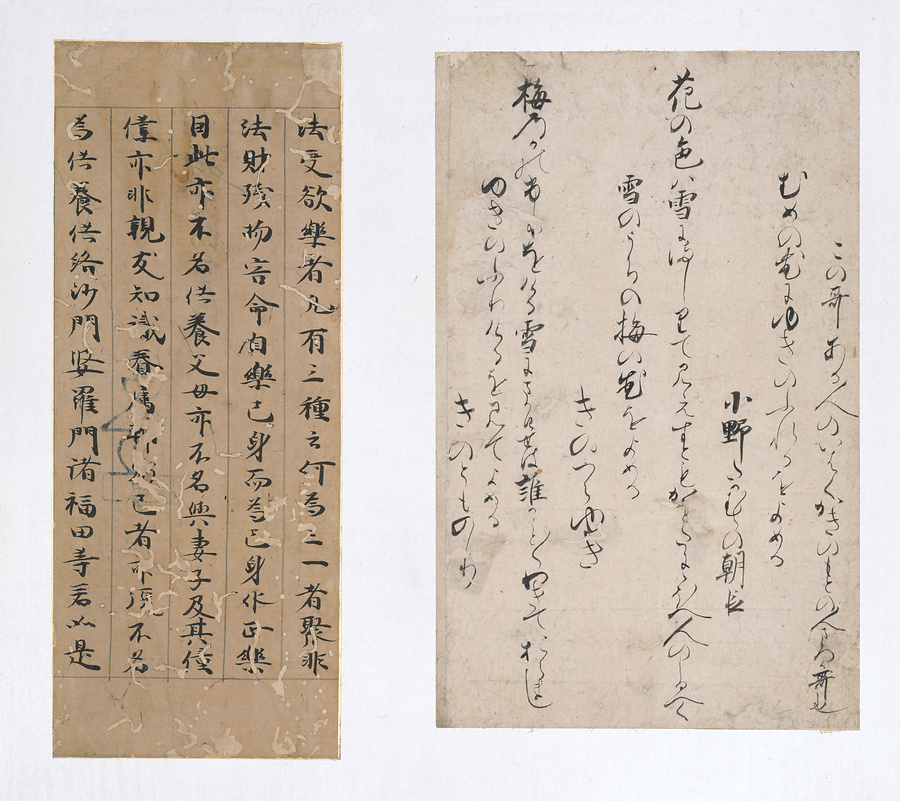 この哥ある人のいはくかきのもとの人まろか哥也
むめの花にゆきのふれるをよめる
小野たかむらの朝臣
花の色は雪にましりて見えすともかをたににほへ人のしるへく
雪のうちの梅の花をよめる
きのつらゆき
梅のかのふりをける雪にまかひせは誰かことことわきておらまし
ゆきのふれりけるを見てよめる
きのとものり
法受欲樂者凡有三種云何為三一者聚非
法財殘物害命自樂己身而為己身作正樂
因此亦不名供養父母亦不名與妻子及其僮
僕亦非親友知識眷属己者亦復不名
為供養供給沙門婆羅門諸福田等若如是